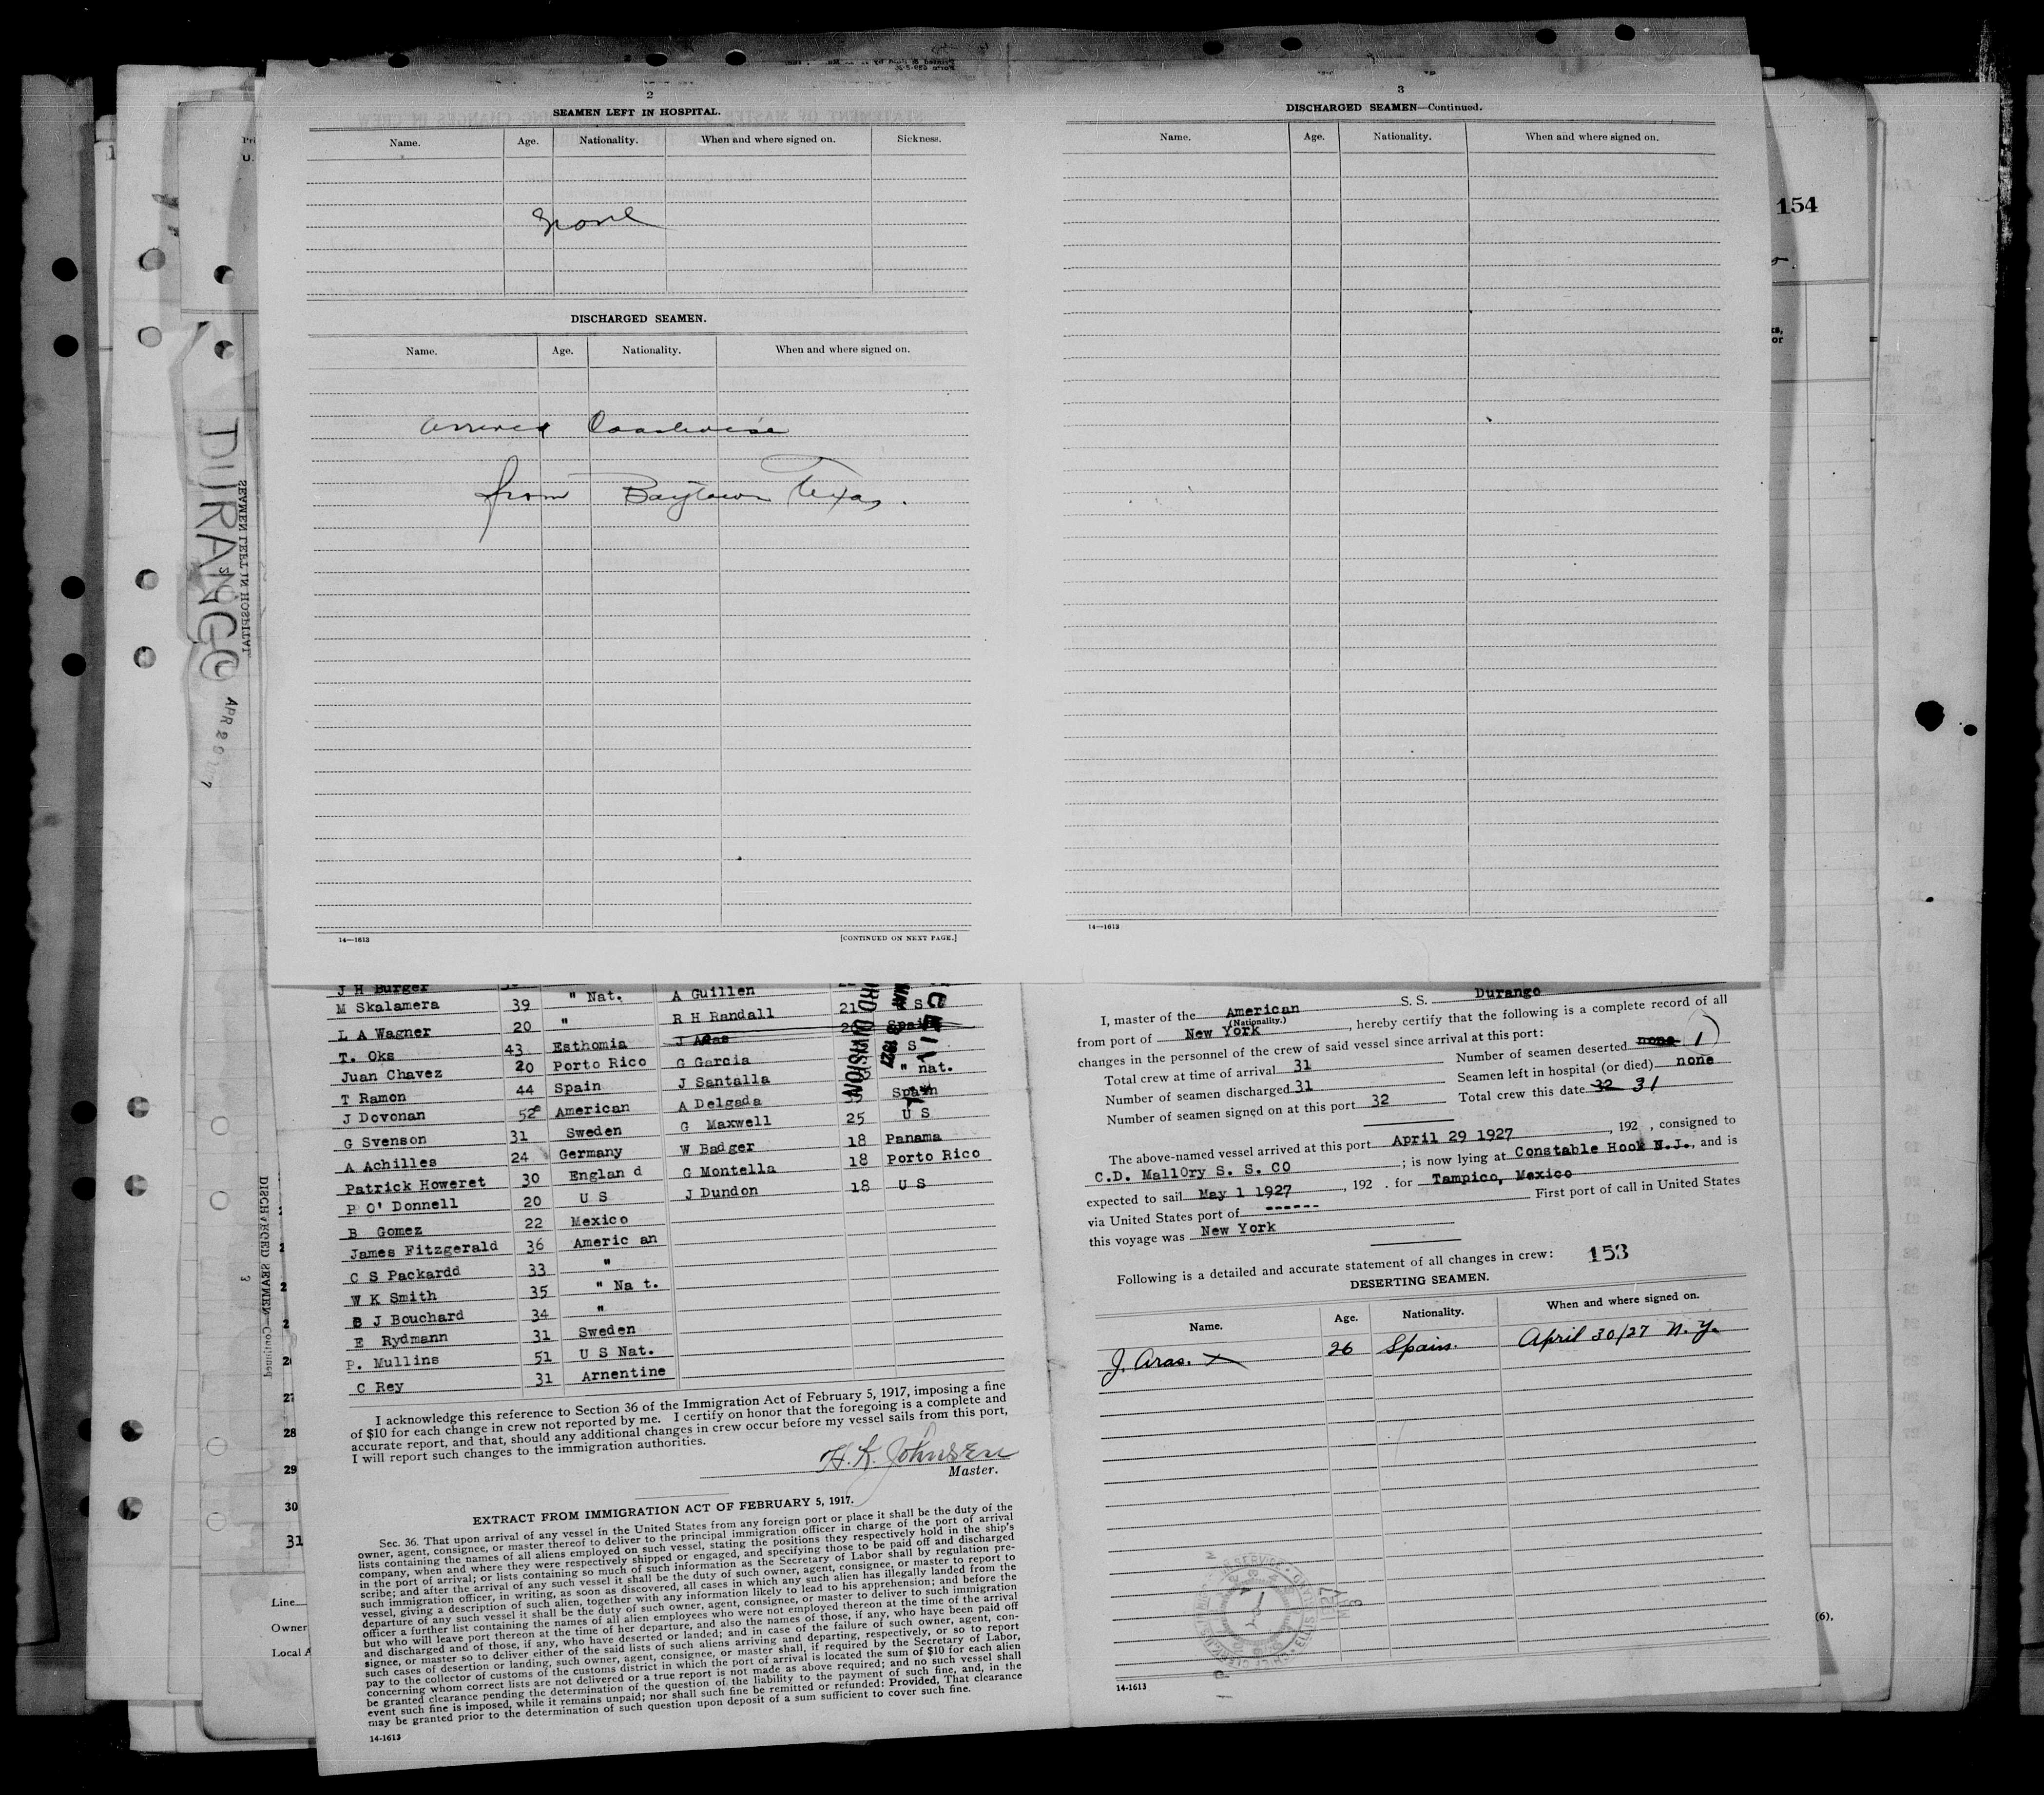 2
SEAMEN LEFT IN HOSPITAL.
Name. Age. Nationality. When and where signed on. Sickness.
None
DISCHARGED SEAMEN.
Name. Age. Nationality. When and where signed on.
arrived Coastwise
from Baytown Texas.
14—1613 [CONTINUED ON NEXT PAGE.]
3
DISCHARGED SEAMEN—Continued.
Name. Age. Nationality. When and where signed on.
14—1613
154
DURANGO
APR 29
SEAMEN LEFT IN HOSPITAL
DISCHARGED SEAMEN—Continued
3
J H Burger
M Skalamera 39 " Nat. A Guillen
L A Wagner 20 " R H Randall 21 S
T. Oks 43 Esthomia J Aras 26 Spain
Juan Chavez 20 Porto Rico G Garcia S
T Ramon 44 Spain J Santalla " nat.
J Dovonan 52 American A Delgada Spain
G Svenson 31 Sweden G Maxwell 25 U S
A Achilles 24 Germany W Badger 18 Panama
Patrick Howeret 30 Englan d G Montella 18 Porto Rico
P O' Donnell 20 U S J Dundon 18 U S
B Gomez 22 Mexico
James Fitzgerald 36 Americ an
C S Packardd 33 "
W K Smith 35 " Na t.
B J Bouchard 34 "
E Rydmann 31 Sweden
P. Mullins 51 U S Nat.
C Rey 31 Arnentine
1927
I acknowledge this reference to Section 36 of the Immigration Act of February 5, 1917, imposing a fine
of $10 for each change in crew not reported by me. I certify on honor that the foregoing is a complete and
accurate report, and that, should any additional changes in crew occur before my vessel sails from this port,
I will report such changes to the immigration authorities.
H. K. Johnsen
Master.
EXTRACT FROM IMMIGRATION ACT OF FEBRUARY 5, 1917.
Sec. 36. That upon arrival of any vessel in the United States from any foreign port or place it shall be the duty of the
owner, agent, consignee, or master thereof to deliver to the principal immigration officer in charge of the port of arrival
lists containing the names of all aliens employed on such vessel, stating the positions they respectively hold in the ship's
company, when and where they were respectively shipped or engaged, and specifying those to be paid off and discharged
in the port of arrival; or lists containing so much of such information as the Secretary of Labor shall by regulation pre-
scribe; and after the arrival of any such vessel it shall be the duty of such owner, agent, consignee, or master to report to
such immigration officer, in writing, as soon as discovered, all cases in which any such alien has illegally landed from the
vessel, giving a description of such alien, together with any information likely to lead to his apprehension; and before the
departure of any such vessel it shall be the duty of such owner, agent, consignee, or master to deliver to such immigration
officer a further list containing the names of all alien employees who were not employed thereon at the time of the arrival
but who will leave port thereon at the time of her departure, and also the names of those, if any, who have been paid off
and discharged and of those, if any, who have deserted or landed; and in case of the failure of such owner, agent, con-
signee, or master so to deliver either of the said lists of such aliens arriving and departing, respectively, or so to report
such cases of desertion or landing, such owner, agent, consignee, or master shall, if required by the Secretary of Labor,
pay to the collector of customs of the customs district in which the port of arrival is located the sum of $10 for each alien
concerning whom correct lists are not delivered or a true report is not made as above required; and no such vessel shall
be granted clearance pending the determination of the question of the liability to the payment of such fine, and, in the
event such fine is imposed, while it remains unpaid; nor shall such fine be remitted or refunded: Provided, That clearance
may be granted prior to the determination of such question upon deposit of a sum sufficient to cover such fine.
14-1613
27
28
29
30
31
Line
Owner
Local A
I, master of the American S. S. Durango
(Nationality.)
from port of New York, hereby certify that the following is a complete record of all
changes in the personnel of the crew of said vessel since arrival at this port:
Total crew at time of arrival 31 Number of seamen deserted none 1
Number of seamen discharged 31 Seamen left in hospital (or died) none
Number of seamen signed on at this port 32 Total crew this date 32 31
The above-named vessel arrived at this port April 29 1927, 192 , consigned to
C.D. MallOry S. S. CO ; is now lying at Constable Hook N.J., and is
expected to sail May 1 1927, 192 . for Tampico, Mexico
via United States port of ------ First port of call in United States
this voyage was New York
Following is a detailed and accurate statement of all changes in crew: 153
DESERTING SEAMEN.
Name. Age. Nationality. When and where signed on.
J. Aras. X 26 Spain. April 30/27 N.Y.
14-1613
(6).